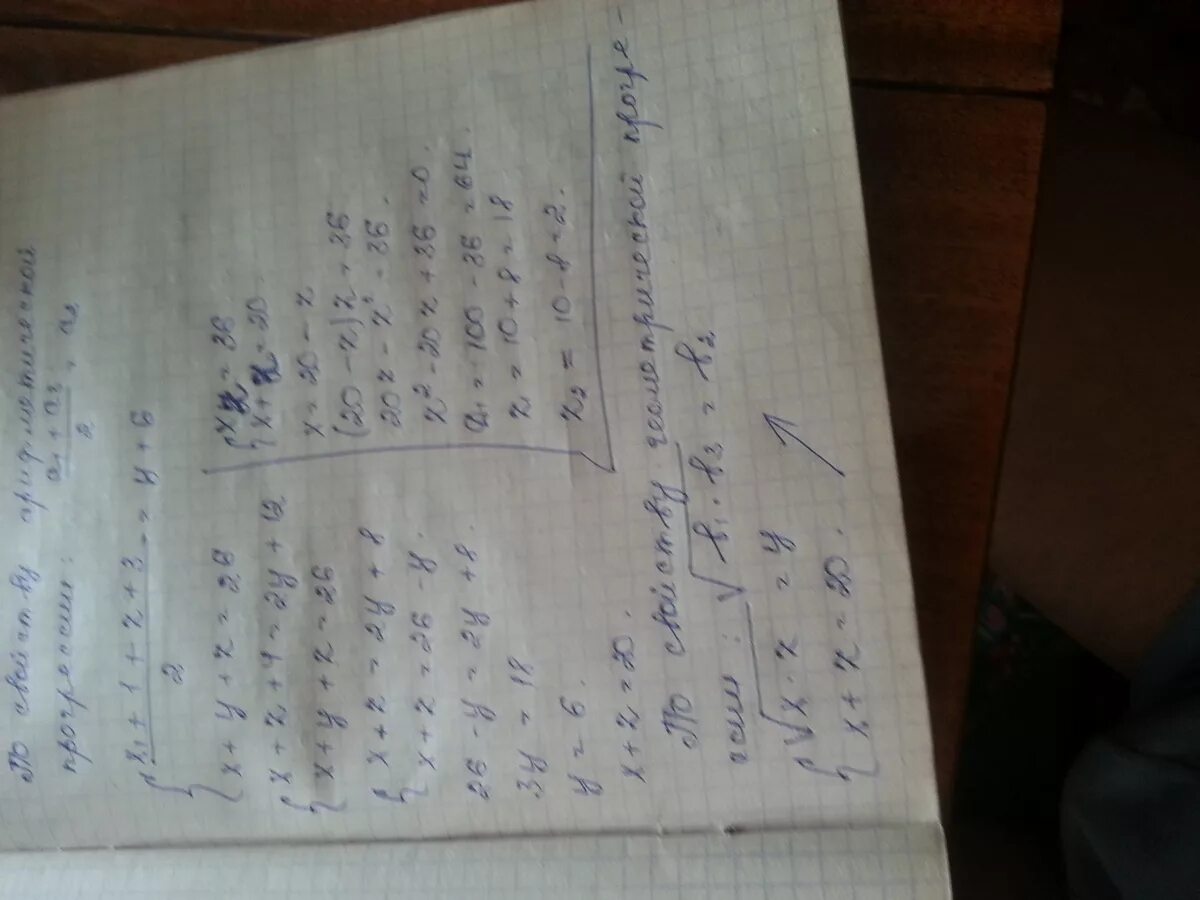 По свойству арифметической
прогрессии: (a₁ + a₃)/2 = a₂
{ (x + 1 + z + 3)/2 = y + 6
x + y + z = 26
{ x + z + 4 = 2y + 12
x + y + z = 26
{ x + z = 2y + 8
x + z = 26 - y.
26 - y = 2y + 8.
3y = 18
y = 6.
x + z = 20.
По свойству геометрической прогре-
ссии: √(b₁ · b₃) = b₂
{ √(x · z) = y
x + z = 20.
{ xz = 36
x + z = 20.
x = 20 - z
(20 - z) z = 36
20z - z² = 36.
z² - 20z + 36 = 0.
D₁ = 100 - 36 = 64.
z₁ = 10 + 8 = 18
z₂ = 10 - 8 = 2.